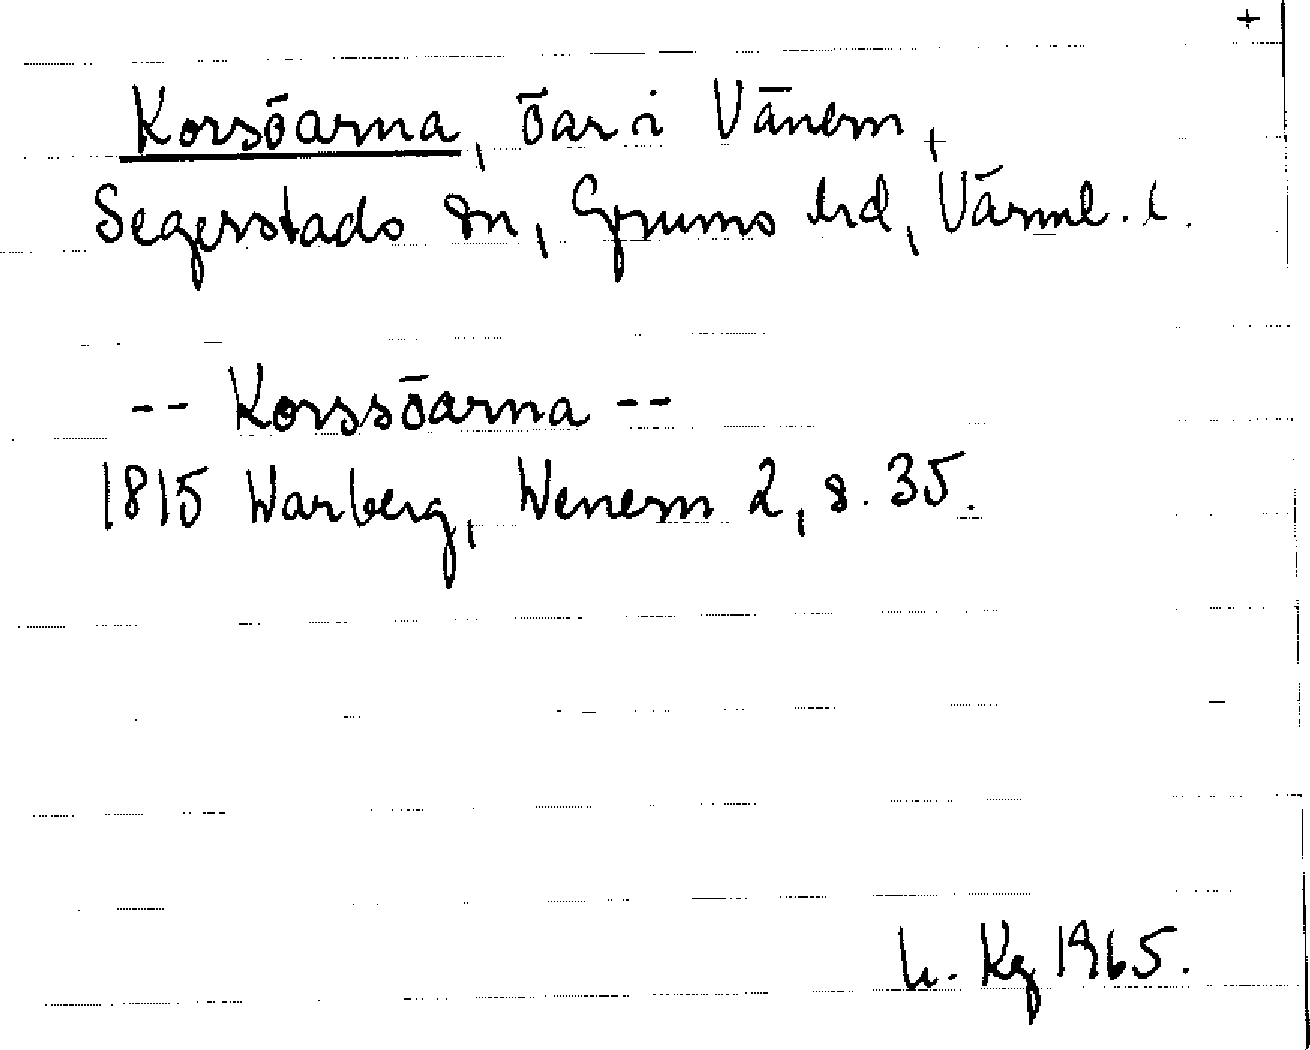 +
Korsöarna, öar i Vänern,
Segerstads sn, Grums hd, Värml. l.
-- Korssöarna --
1815 Warberg, Wenern 2, s. 35.
h. Kg 1965.